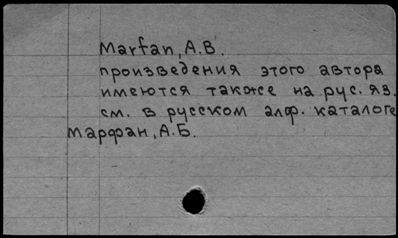 Marfan, A.B.
произведения этого автора
имеются также на рус. яз.
см. в русском алф. каталоге
Марфан, А.Б.